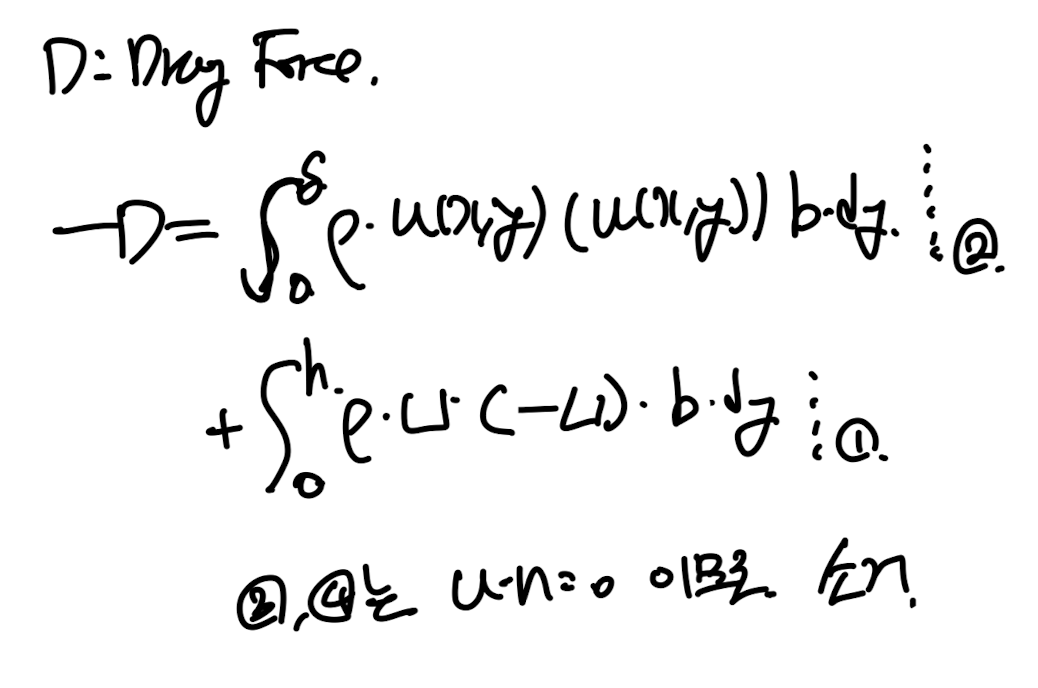 D = Drag Force.
-D = ∫₀^δ ρ · u(x,y) (u(x,y)) b·dy. ⋮ ②.
+ ∫₀^h. ρ · U · (-U) · b · dy ⋮ ①.
②, ④는 u·n = 0 이므로 소거.